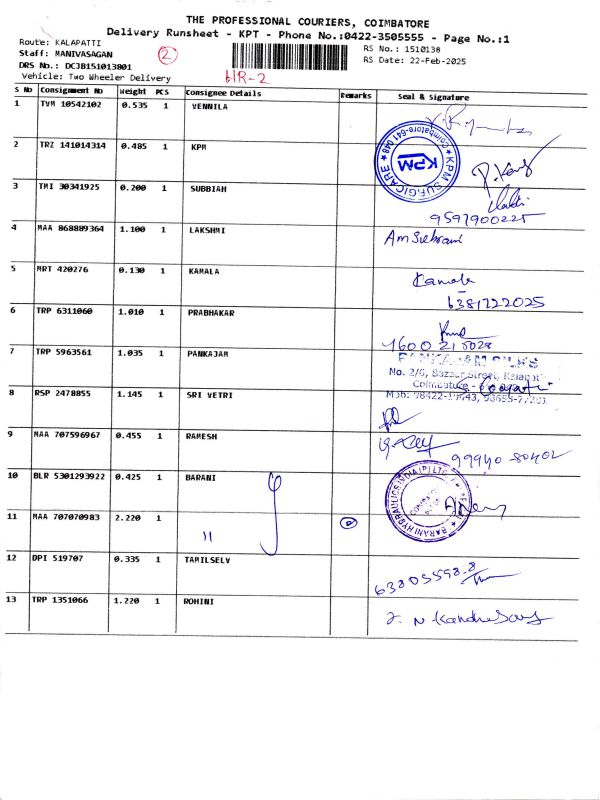 THE PROFESSIONAL COURIERS, COIMBATORE
Delivery Runsheet - KPT - Phone No.:0422-3505555 - Page No.:1
Route: KALAPATTI
Staff: MANIVASAGAN
DRS No.: DCJ8151013801
Vehicle: Two Wheeler Delivery
2
HR-2
RS No.: 1510138
RS Date: 22-Feb-2025
S No Consignment No Weight PCS Consignee Details Remarks Seal & signature
1 TVM 10542102 0.535 1 VENNILA
2 TRZ 141014314 0.485 1 KPM
KPM
3 TMI 30341925 0.200 1 SUBBIAH
9597900225
4 MAA 868889364 1.100 1 LAKSHMI
5 MRT 420276 0.130 1 KAMALA
Kamala
6381722025
6 TRP 6311060 1.010 1 PRABHAKAR
7 TRP 5963561 1.035 1 PANKAJAM
PANKAJAM SILKS
No. 2/6, Bazaar Street, Kalapatti
Coimbatore -
8 RSP 2478855 1.145 1 SRI VETRI
9 MAA 707596967 0.455 1 RAMESH
10 BLR 5301293922 0.425 1 BARANI
BARANI HYDRAULICS INDIA (P) LTD
11 MAA 707070983 2.220 1 "
12 DPI 519707 0.335 1 TAMILSELV
13 TRP 1351066 1.220 1 ROHINI